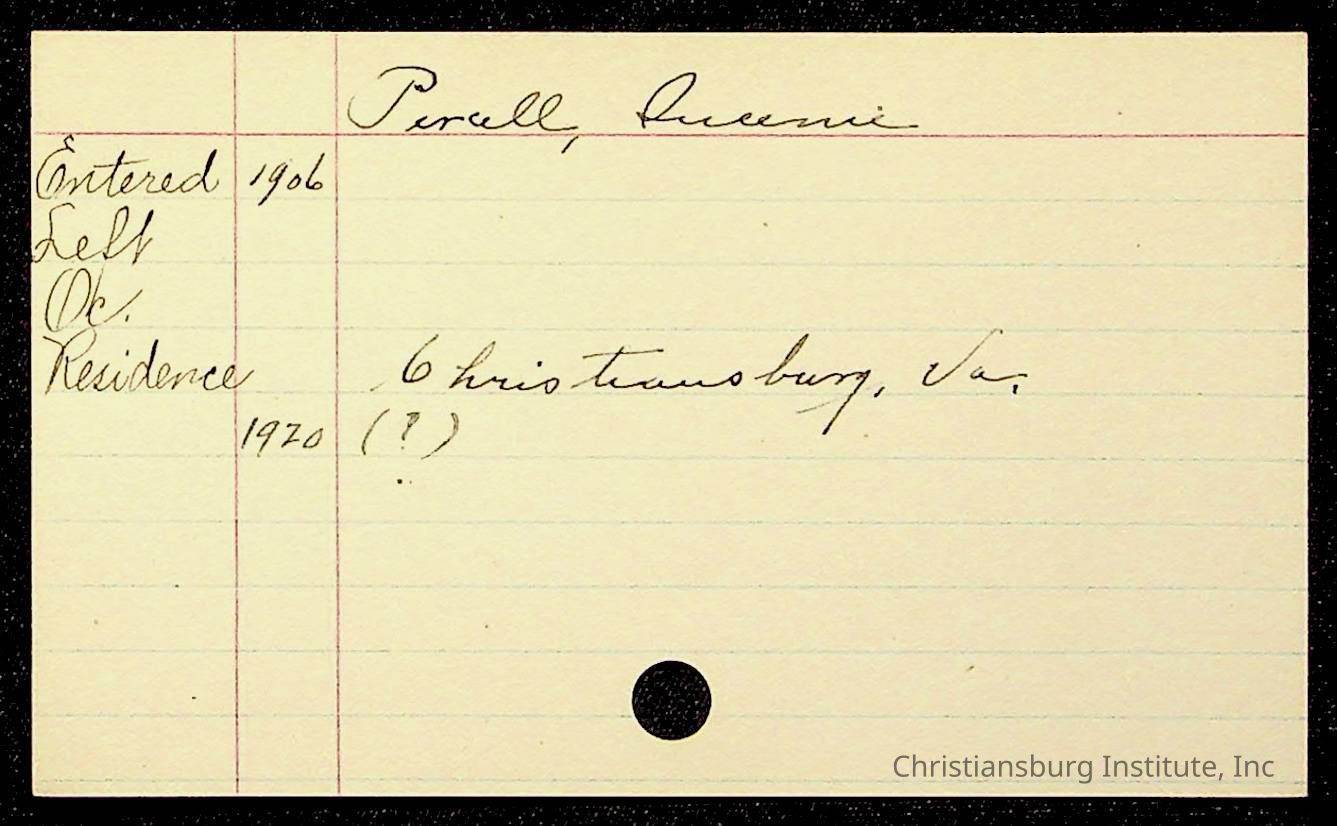 Percell, Queenie
Entered 1906
Left
Oc.
Residence Christiansburg, Va.
1920 (?)
Christiansburg Institute, Inc